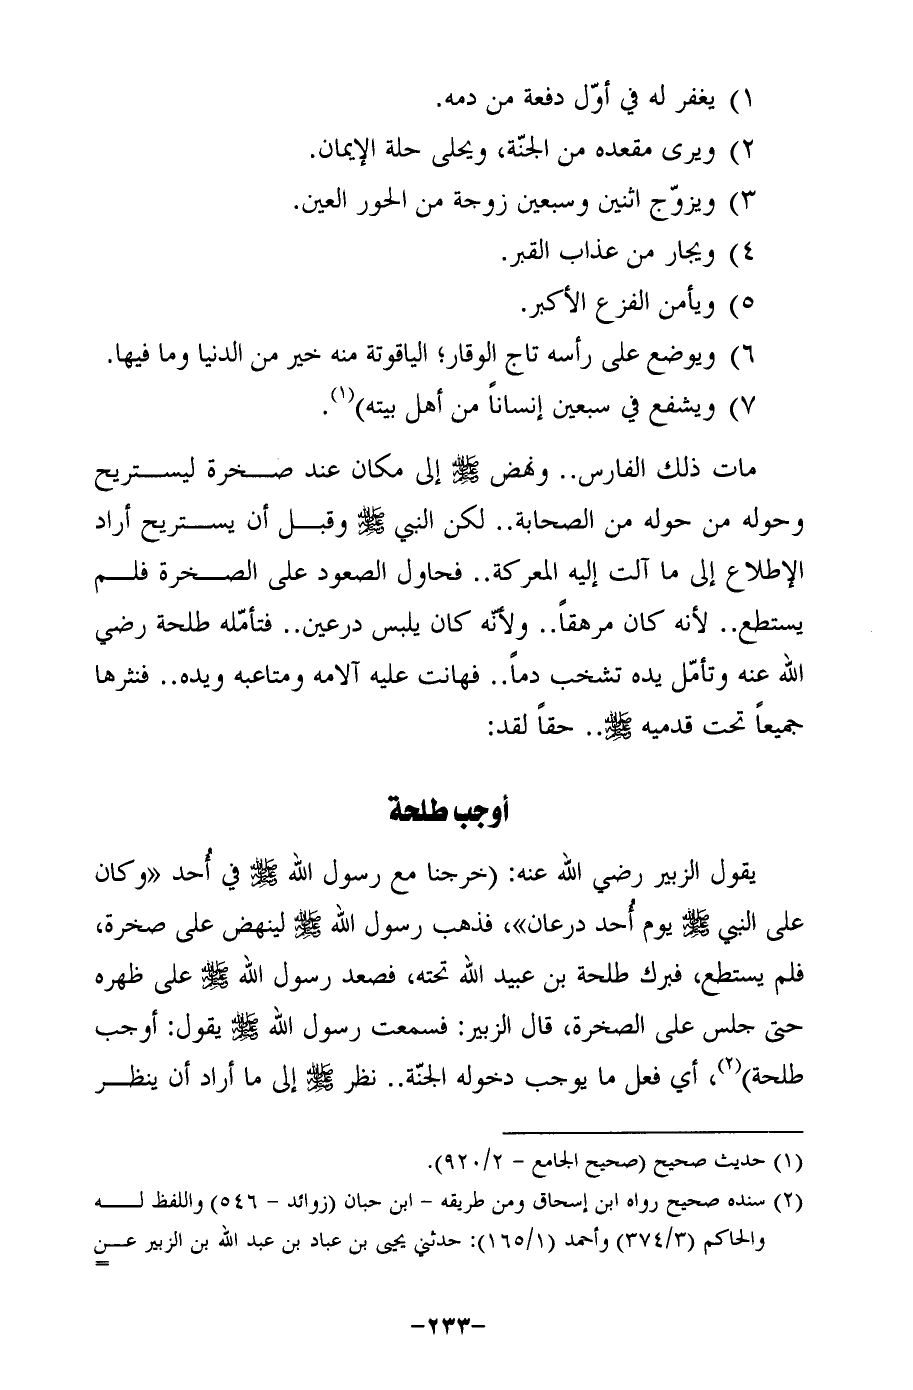 ١) يغفر له في أوّل دفعة من دمه.
٢) ويرى مقعده من الجنّة، ويحلى حلة الإيمان.
٣) ويزوّج اثنين وسبعين زوجة من الحور العين.
٤) ويجار من عذاب القبر.
٥) ويأمن الفزع الأكبر.
٦) ويوضع على رأسه تاج الوقار؛ الياقوتة منه خير من الدنيا وما فيها.
٧) ويشفع في سبعين إنساناً من أهل بيته)(١).
مات ذلك الفارس.. ونهض ﷺ إلى مكان عند صخرة ليستريح
وحوله من حوله من الصحابة.. لكن النبي ﷺ وقبل أن يستريح أراد
الإطلاع إلى ما آلت إليه المعركة.. فحاول الصعود على الصخرة فلم
يستطع.. لأنه كان مرهقاً.. ولأنّه كان يلبس درعين.. فتأمّله طلحة رضي
الله عنه وتأمّل يده تشخب دماً.. فهانت عليه آلامه ومتاعبه ويده.. فنثرها
جميعاً تحت قدميه ﷺ.. حقاً لقد:
أوجب طلحة
يقول الزبير رضي الله عنه: (خرجنا مع رسول الله ﷺ في أُحد «وكان
على النبي ﷺ يوم أُحد درعان»، فذهب رسول الله ﷺ لينهض على صخرة،
فلم يستطع، فبرك طلحة بن عبيد الله تحته، فصعد رسول الله ﷺ على ظهره
حتى جلس على الصخرة، قال الزبير: فسمعت رسول الله ﷺ يقول: أوجب
طلحة)(٢)، أي فعل ما يوجب دخوله الجنّة.. نظر ﷺ إلى ما أراد أن ينظر
(١) حديث صحيح (صحيح الجامع - ٩٢٠/٢).
(٢) سنده صحيح رواه ابن إسحاق ومن طريقه - ابن حبان (زوائد - ٥٤٦) واللفظ له
والحاكم (٣٧٤/٣) وأحمد (١٦٥/١): حدثني يحيى بن عباد بن عبد الله بن الزبير عن
=
-٢٣٣-